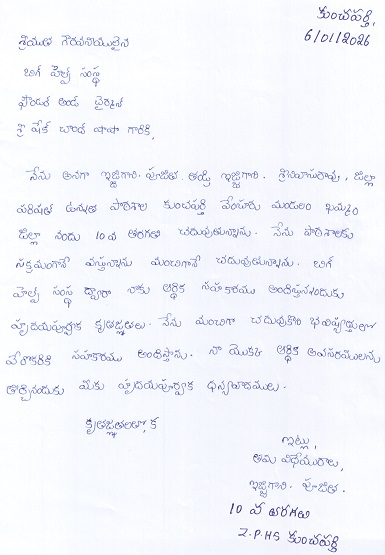 కుంచపర్తి,
6/01/2026
శ్రీయుత గౌరవనీయులైన
బిగ్ హెల్ప్ సంస్థ
ఫౌండర్ అండ్ చైర్మన్
శ్రీ షేక్ చాంద్ పాషా గారికి,
నేను అనగా ఇజ్జిగాని. పూజిత తండ్రి ఇజ్జిగాని. శ్రీనివాసరావు, జిల్లా
పరిషత్ ఉన్నత పాఠశాల కుంచపర్తి వేంసూరు మండలం ఖమ్మం
జిల్లా నందు 10 వ తరగతి చదువుతున్నాను. నేను పాఠశాలకు
సక్రమంగానే వస్తున్నాను మంచిగానే చదువుతున్నాను. బిగ్
హెల్ప్ సంస్థ ద్వారా నాకు ఆర్థిక సహకారము అందిస్తున్నందుకు
హృదయపూర్వక కృతజ్ఞతలు. నేను మంచిగా చదువుకొని భవిష్యత్తులో
వేరొకరికి సహకారము అందిస్తాను. నా యొక్క ఆర్థిక అవసరములను
తీర్చినందుకు మీకు హృదయపూర్వక ధన్యవాదములు.
కృతజ్ఞతలతో,
ఇట్లు,
తమ విధేయురాలు,
ఇజ్జిగాని. పూజిత.
10 వ తరగతి
Z.P.HS కుంచపర్తి